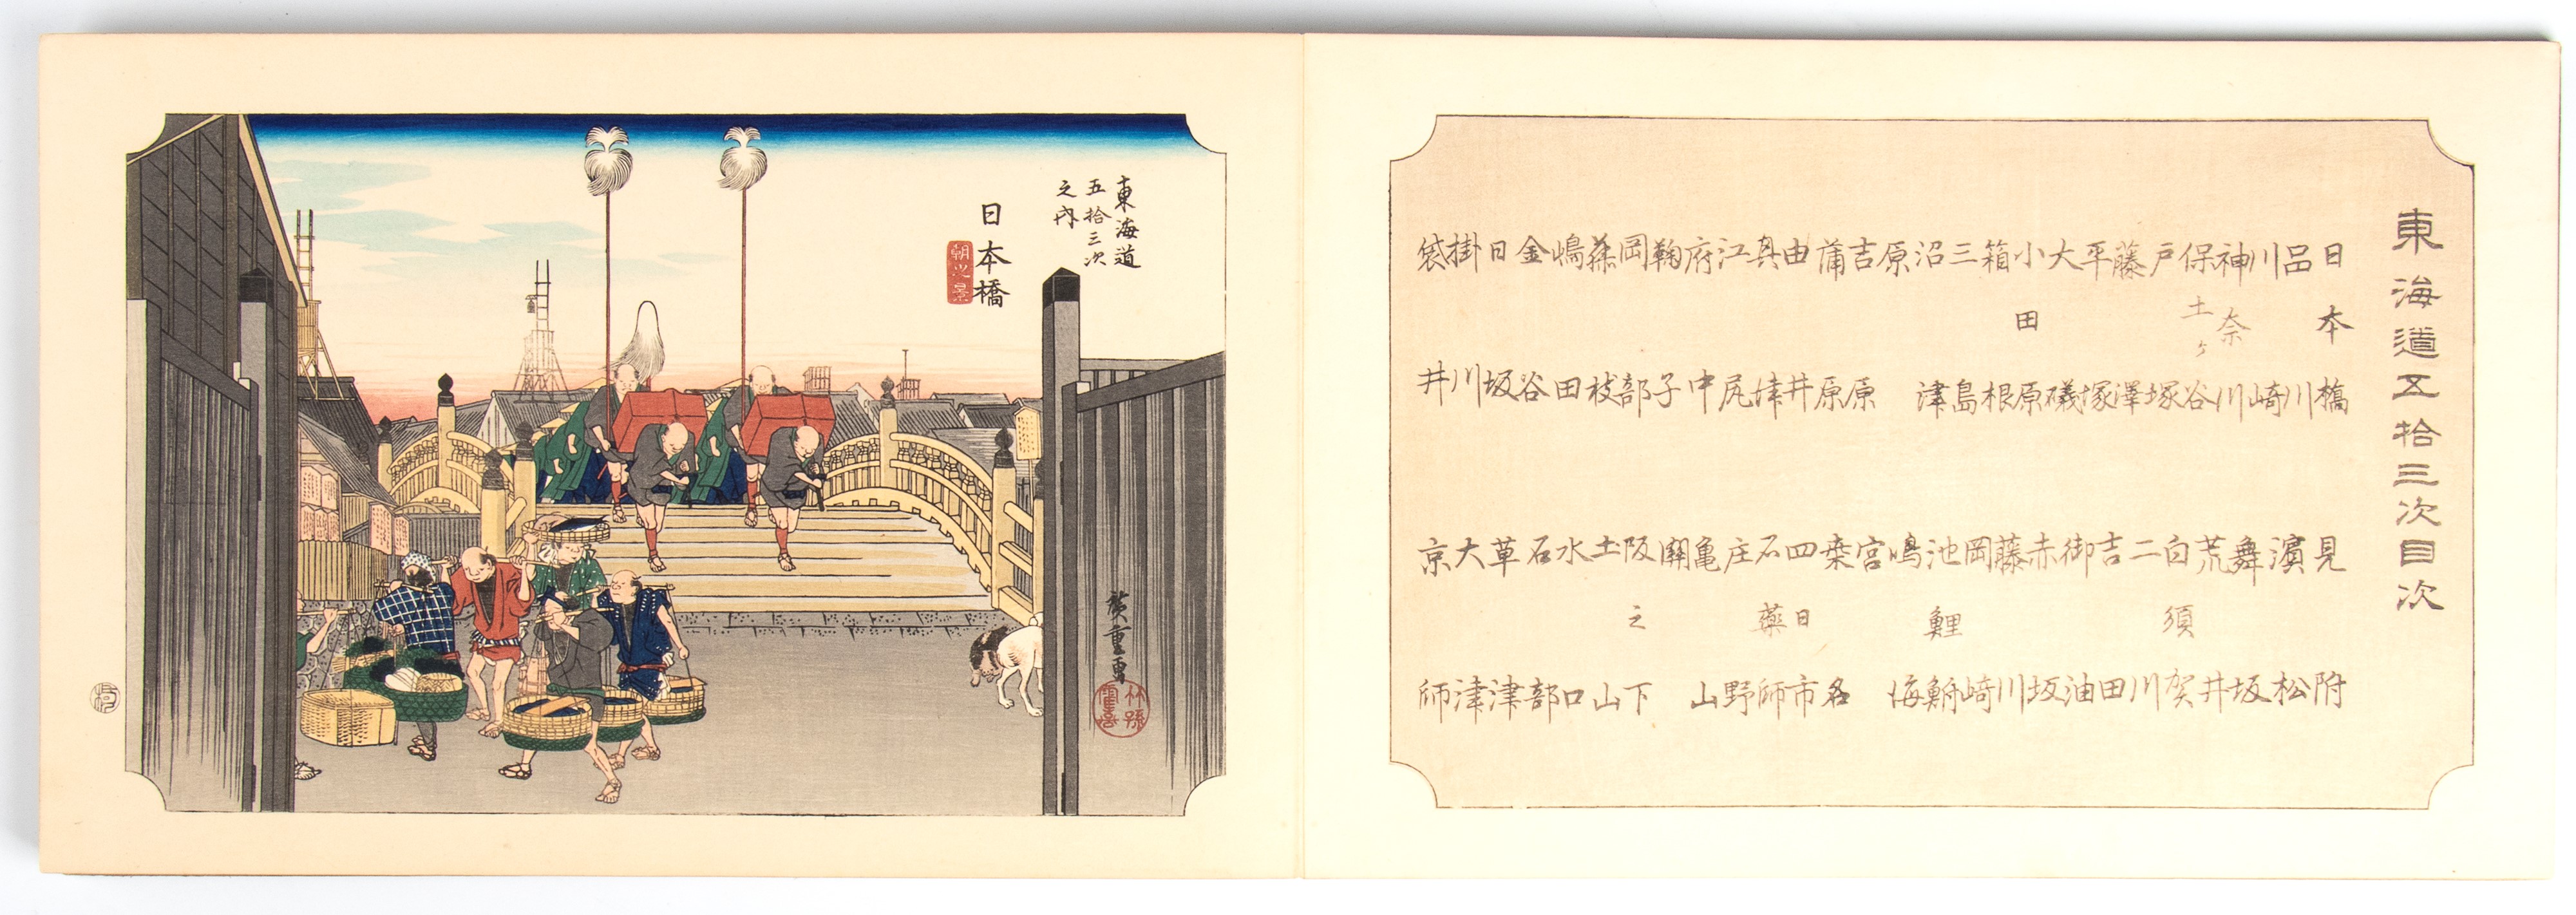 東海道五拾三次目次
日本橋
品川
川崎
神奈川
保土ヶ谷
戸塚
藤澤
平塚
大磯
小田原
箱根
三島
沼津
原
吉原
蒲原
由井
奥津
江尻
府中
鞠子
岡部
藤枝
嶋田
金谷
日坂
掛川
袋井
見附
濱松
舞坂
荒井
白須賀
二川
吉田
御油
赤坂
藤川
岡崎
池鯉鮒
鳴海
宮
桑名
四日市
石薬師
庄野
亀山
関
阪之下
土山
水口
石部
草津
大津
京師
東海道
五拾三次
之内
日本橋
朝之景
廣重画
竹孫